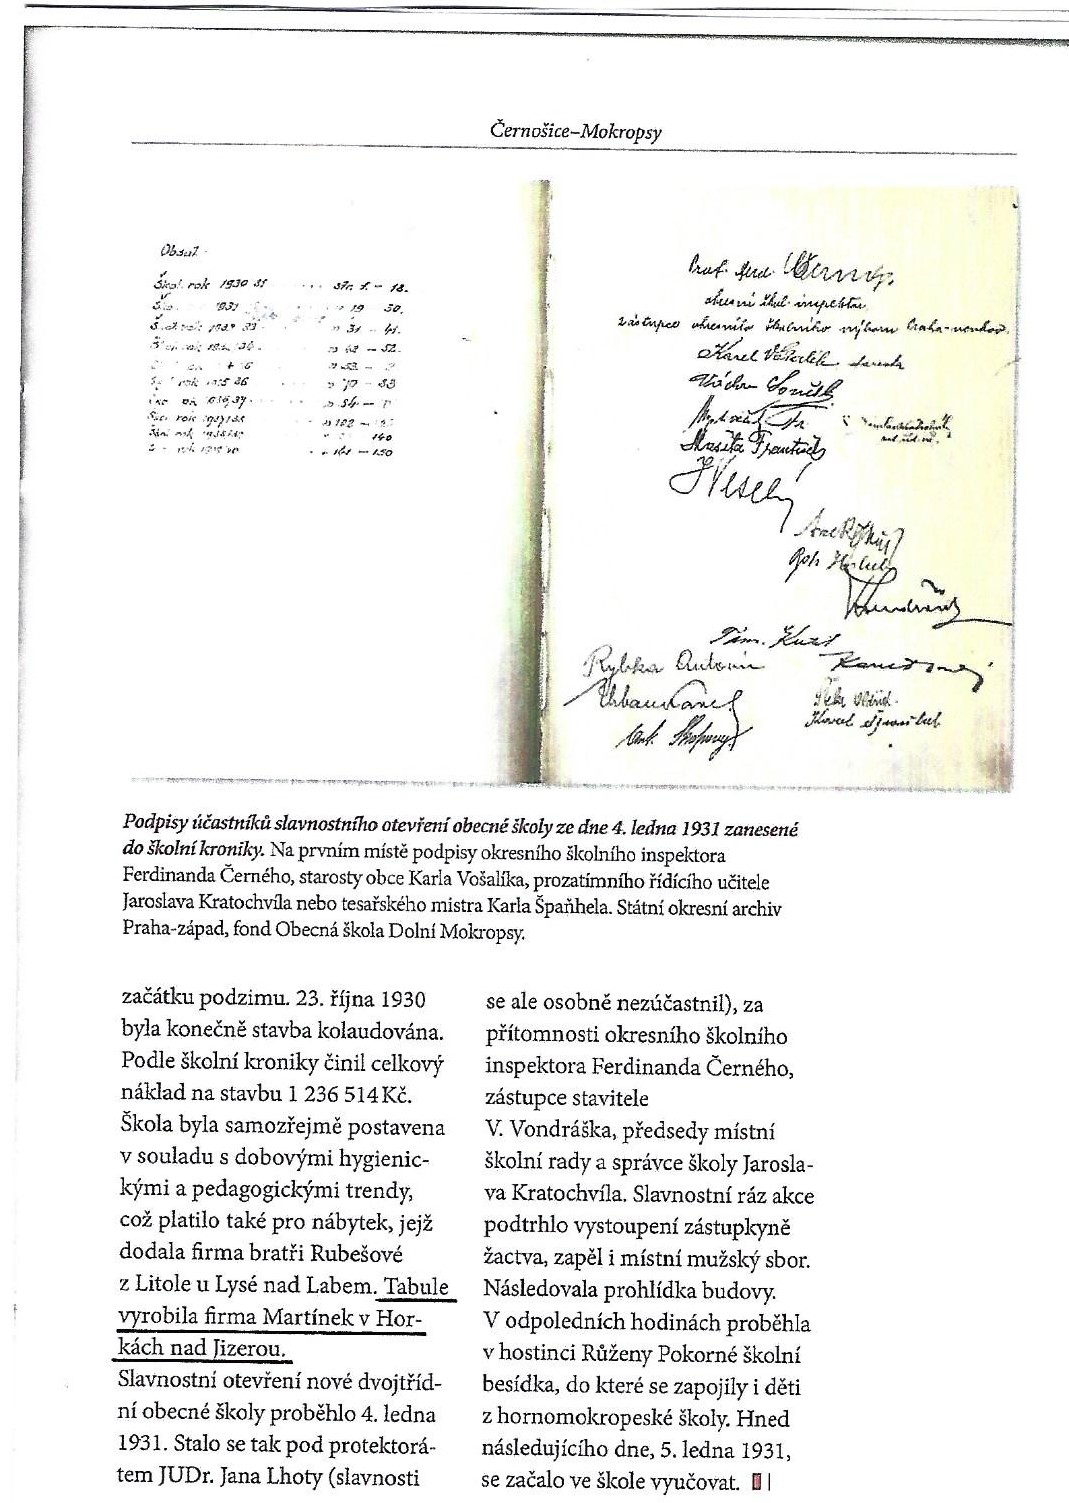 Černošice–Mokropsy
Obsah
Škol. rok 1930 31 str. 1. – 18.
1931 19 – 30.
31 – 41.
42 – 52.
140
150
Prof. Ferd. Černý,
okresní škol. inspektor
zástupce okresního školního výboru Praha-venkov.
Karel Vošalík starosta
Václav
František
Veselý
Vondrášek
Rybka Antonín
Urban Karel
Ant.
Podpisy účastníků slavnostního otevření obecné školy ze dne 4. ledna 1931 zanesené
do školní kroniky. Na prvním místě podpisy okresního školního inspektora
Ferdinanda Černého, starosty obce Karla Vošalíka, prozatímního řídícího učitele
Jaroslava Kratochvíla nebo tesařského mistra Karla Špaňhela. Státní okresní archiv
Praha-západ, fond Obecná škola Dolní Mokropsy.
začátku podzimu. 23. října 1930
byla konečně stavba kolaudována.
Podle školní kroniky činil celkový
náklad na stavbu 1 236 514 Kč.
Škola byla samozřejmě postavena
v souladu s dobovými hygienic-
kými a pedagogickými trendy,
což platilo také pro nábytek, jejž
dodala firma bratři Rubešové
z Litole u Lysé nad Labem. Tabule
vyrobila firma Martínek v Hor-
kách nad Jizerou.
Slavnostní otevření nové dvojtříd-
ní obecné školy proběhlo 4. ledna
1931. Stalo se tak pod protektorá-
tem JUDr. Jana Lhoty (slavnosti
se ale osobně nezúčastnil), za
přítomnosti okresního školního
inspektora Ferdinanda Černého,
zástupce stavitele
V. Vondráška, předsedy místní
školní rady a správce školy Jarosla-
va Kratochvíla. Slavnostní ráz akce
podtrhlo vystoupení zástupkyně
žactva, zapěl i místní mužský sbor.
Následovala prohlídka budovy.
V odpoledních hodinách proběhla
v hostinci Růženy Pokorné školní
besídka, do které se zapojily i děti
z hornomokropeské školy. Hned
následujícího dne, 5. ledna 1931,
se začalo ve škole vyučovat.